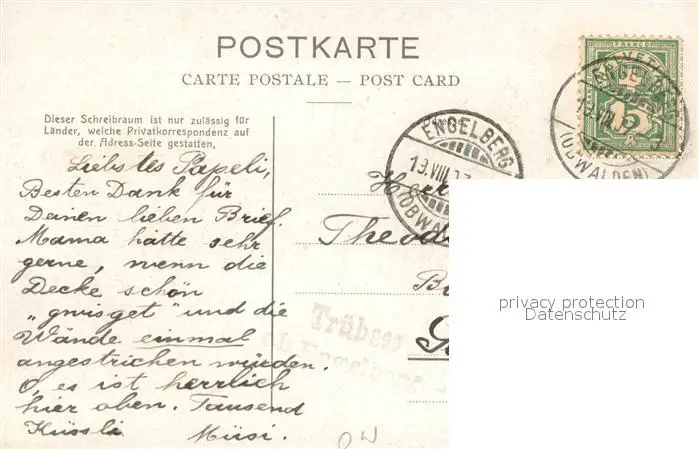 POSTKARTE
CARTE POSTALE — POST CARD
Dieser Schreibraum ist nur zulässig für
Länder, welche Privatkorrespondenz auf
der Adress-Seite gestatten.
Liebstes Papeli,
Besten Dank für
Deinen lieben Brief.
Mama hätte sehr
gerne, wenn die
Decke schön
„gwisget" und die
Wände einmal
angestrichen würden.
O, es ist herrlich
hier oben. Tausend
Küssli Müsi.
ENGELBERG
19.VIII.07
(OBWALDEN)
FRANCO
HELVETIA
5
ENGELBERG
19.VIII.07
(OBWALDEN)
Herr
Theod
Trübsee
ob Engelberg
privacy protection
Datenschutz
OW